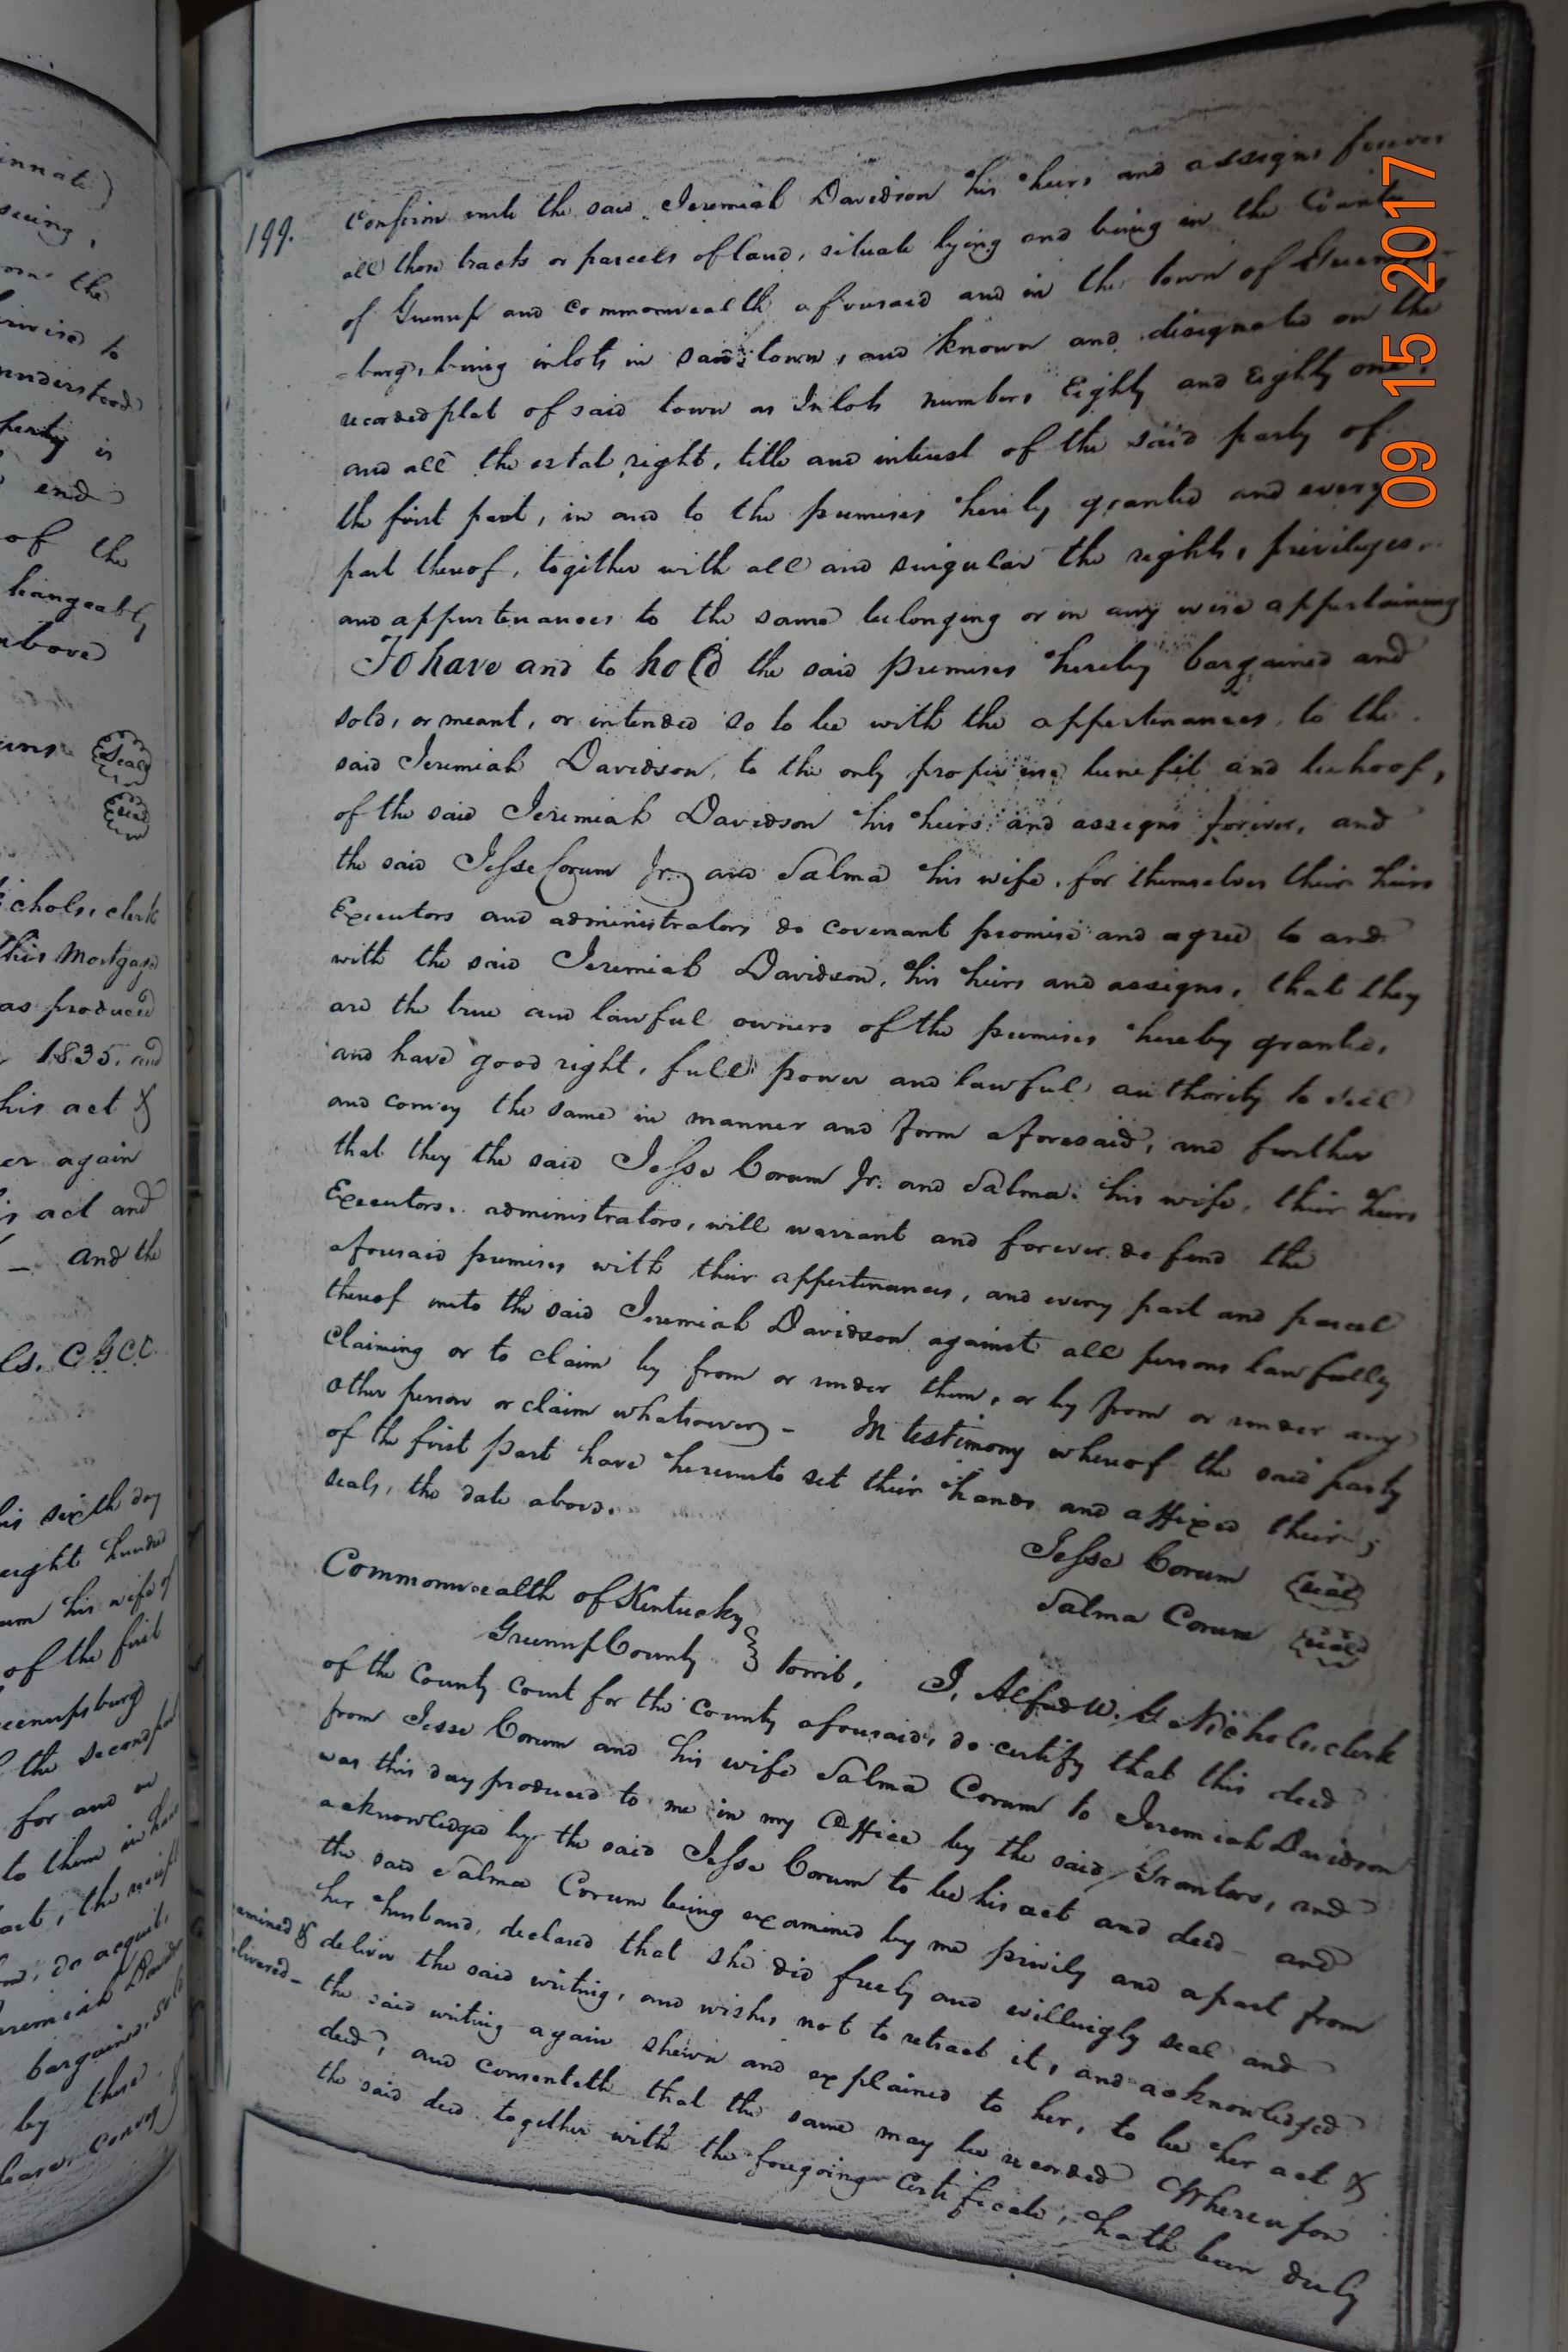 innate)
seeing,
the
to
understood
party is
end
of the
hangeably
above
Seal
Seal
Nichols, clerk
this Mortgage
as produced
1835, and
his act &
er again
is act and
— and the
ls. C.G.C.C.
his sixth day
eight hundred
um his wife of
of the first
eenupsburg
the second part
for and in
to them in han
art, the receipt
do acquit,
eremiah Davids
bargained, sold
by these
Convey
199.
Confirm unto the said Jeremiah Davidson his heirs and assigns forever
all those tracts or parcels of land, situate lying and being in the County
of Greenup and Commonwealth aforesaid and in the town of Greenups
-burg, being inlots in said town, and known and designated on the
recorded plat of said town as Inlots numbers Eighty and Eighty one,
and all the estat right, title and interest of the said party of
the first part, in and to the premises hereby granted and every
part thereof, together with all and singular the rights, privileges
and appurtenances to the same belonging or in any wise appertaining
To have and to hold the said premises hereby bargained and
sold, or meant, or intended so to be with the appertinances, to the
said Jeremiah Davidson, to the only proper use benefit and behoof,
of the said Jeremiah Davidson his heirs and assigns forever, and
the said Jesse Corum Jr. and Salma his wife, for themselves their heirs
Executors and administrators do covenant promise and agree to and
with the said Jeremiah Davidson, his heirs and assigns, that they
are the true and lawful owners of the premises hereby granted,
and have good right, full power and lawful authority to sell
and convey the same in manner and form aforesaid, and further
that they the said Jesse Corum Jr. and Salma his wife, their heirs
Executors, administrators, will warrant and forever defend the
aforesaid premises with their appertinances, and every part and parcel
thereof unto the said Jeremiah Davidson against all persons lawfully
claiming or to claim by from or under them, or by from or under any
other person or claim whatsoever - In testimony whereof the said party
of the first part have hereunto set their hands and affixed their
seals, the date above.
Jesse Corum Seal
Salma Corum Seal
Commonwealth of Kentucky
Greenup County } towit, I, Alfred W. G. Nichols, clerk
of the County Court for the County aforesaid, do certify that this deed
from Jesse Corum and his wife Salma Corum to Jeremiah Davidson
was this day produced to me in my Office by the said Grantors, and
acknowledged by the said Jesse Corum to be his act and deed - and
the said Salma Corum being examined by me privily and apart from
her husband, declared that she did freely and willingly seal and
amined & deliver the said writing, and wishes not to retract it, and acknowledged
livered - the said writing again shewn and explained to her, to be her act &
deed, and consenteth that the same may be recorded Whereupon
the said deed together with the foregoing Certificate, hath been duly
09 15 2017